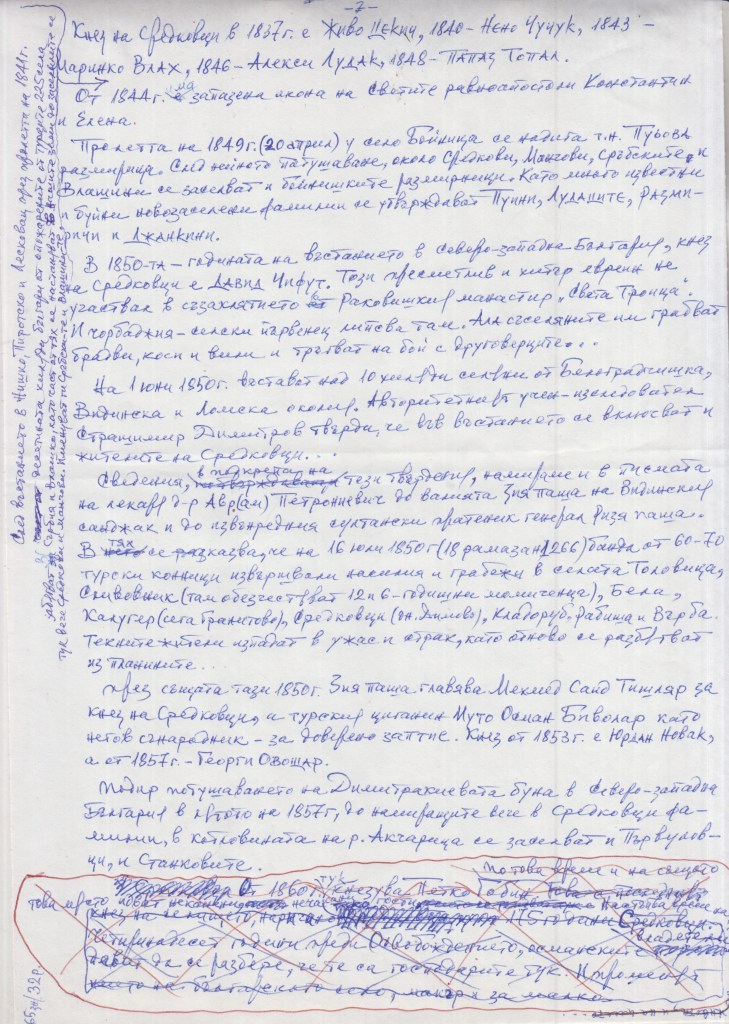 -2-
Кнез на Средковци в 1837г. е Живо Цекин, 1840- Нено Чучук, 1843 -
Маринко Влах, 1846- Алекси Лудак, 1848- Папаз Топал.
От 1844г. запазена икона на Светите равноапостоли Константин
и Елена.
Пролетта на 1849г. (20 април) у село Бойница се надига т.н. Пуьова
размирица. След нейното потушаване, около Средкови, Манчови, Сръбските и
Влашини се заселват и бойнишките размирници. Като много известни
и буйни новозаселени фамилии се утвърждават Пуини, Лудаците, Разми-
ричи и Джанкини.
В 1850-та – годината на въстанието в северо-западна България, кнез
на Средковци е Давид Чифут. Този пресметлив и хитър евреин не
участвал в съзаклятието в Раковишкия манастир „Света Троица".
И чорбаджия-селски първенец липсва там. Ала съселяните им грабват
брадви, коси и вили и тръгват на бой с друговерците...
На 1 юни 1850г. въстават над 10 хиляди селяни от Белоградчишка,
Видинска и Ломска околия. Авторитетният учен-изследовател
Страшимир Димитров твърди, че във въстанието се включват и
жителите на Средковци...
Сведения, в подкрепа на тези твърдения, намираме и в писмата
на лекаря д-р Авр(ам) Петрониевич до валията Зия паша на Видинския
санджак и до извънредния султански пратеник генерал Риза паша.
В тях се разказва, че на 16 юли 1850г (18 рамазан 1266) банда от 60-70
турски конници извършвали насилия и грабежи в селата Толовица,
Сливовник (там обезчестяват 12 и 6-годишни момиченца), Бела,
Калугер (сега Гранитово), Средковци (дн. Димово), Кладоруб, Рабиша и Върба.
Техните жители изпадат в ужас и страх, като отново се разбягват
из планините...
През същата тази 1850г. Зия паша главява Мехмед Саид Тишляр за
кнез на Средковци, а турския циганин Муто Осман Биволар като
негов сънародник - за доверено заптие. Кнез от 1853г. е Юрдан Новак,
а от 1857г. – Георги Овощар.
Подир потушаването на Димитракиевата буна в Северо-западна
България в лятото на 1857г, до намиращите вече в Средковци фа-
милии, в котловината на р. Акчарица се заселват и Първулов-
ци, и Станковите.
По това време и на същото
От 1860г. тук кнезува Петко Габин
това място
175 години Средковци.
Четиринадесет години преди Освобождението, османските владетели
дават да се разбере, че те са господарите тук.
След въстанието в Нишко, Пиротско и Лесковац през пролетта на 1841г.
десетината хиляди българи от опожарените от турците 225 села,
избягват в Сърбия и Влашко, като част от тях се настаняват
тук вече Средкови и Манчови. Именуват ги Сръбски-те и Влашки-те.
65 זн/32р.